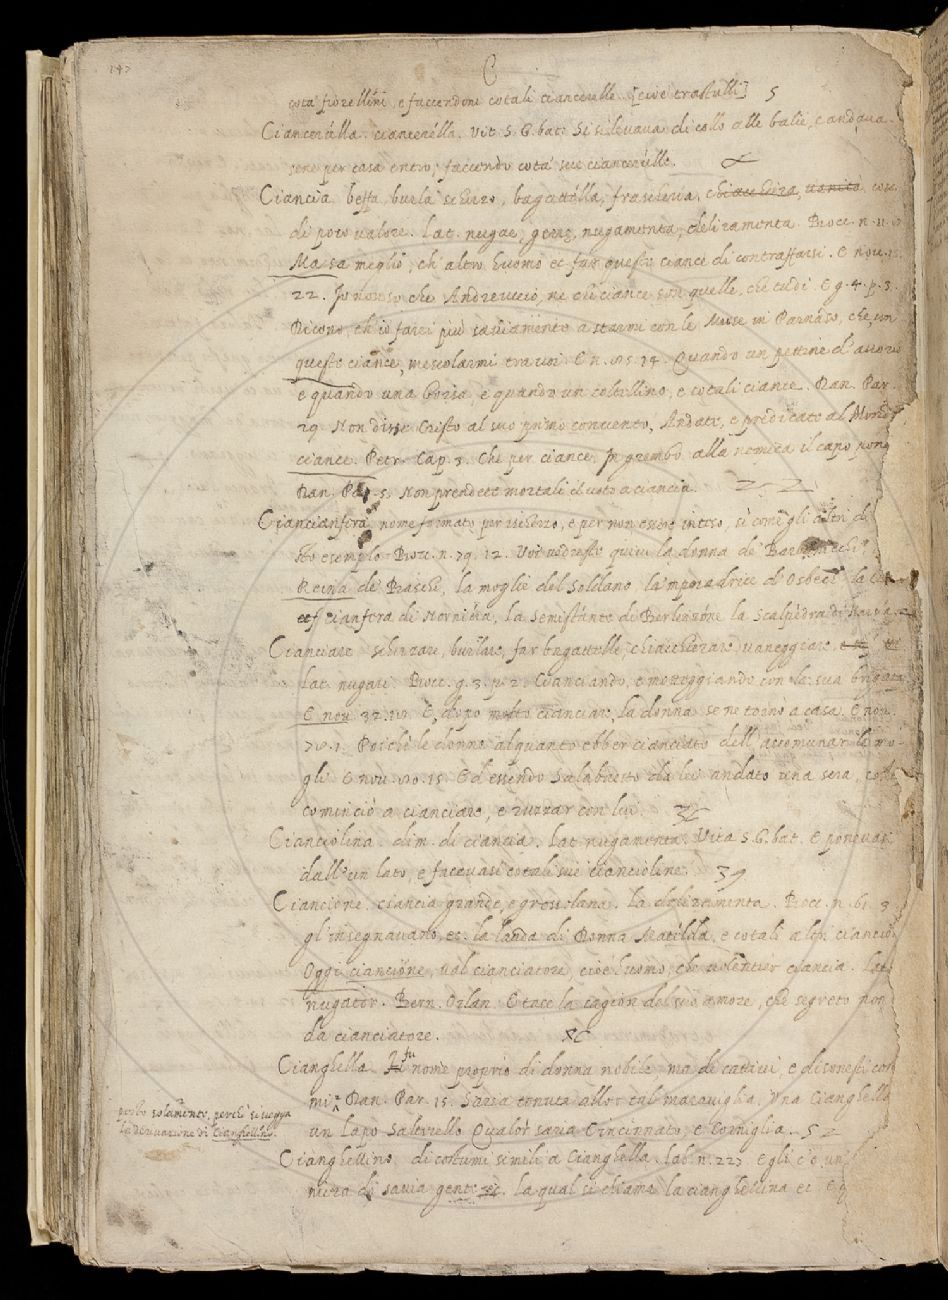 C
cota' fiorellini, e faccendone cotali ciancerulle [cioè trastulli]
Ciancerúlla. ciancerélla. Vit. S. G. bat. Si si levava di collo alle balie, e andava
sene per casa entro, faccendo cota' sue ciancerúlle.
Ciancia beffa, burla scherzo, bagattélla, frascheria, chiacchiera, vanità, cose
di poco valore. Lat. nugae, gerrę, nugamenta, deliramenta. Bocc. n.
Ma sa meglio, ch' altro huomo ec far queste ciance di contraffarsi. E nov.
22. Io non so che Andreuccio, ne che ciance son quelle, che tu di. E g. 4. p. 3.
Dicono, ch' io farei più saviamente a starmi con le Muse in Parnáso, che, con
queste ciance, mescolarmi tra voi. E n. 14. Quando un pettine d' avorio
e quando una borsa, e quando un coltellino, e cotali ciance. Dan. Par.
29. Non disse Cristo al suo primo convento, Andate, e predicate al Mondo
ciance. Petr. Cap. 3. Che per ciance In grembo alla nemica il capo pone
Dan. Par. 5. Non prendete mortali il voto a ciancia.
Ciancianfera, nome formato per ischerzo, e per non essere inteso, sì come gli altri di
sto esemplo Bocc. n. 79. 12. Voi vedreste quivi la donna de' Barbanicchi
Reina de' Baschi, la moglie del Soldano, la mperadrice d' Osbech la
cianfera di Norniéca, la Semistánte di Berlinzóne la Scalpédra di Narsia
Cianciare scherzare, burlare, far bagattelle, chiacchierare, vaneggiare.
Lat. nugari. Bocc. g. 3. p. 2. Cianciando, e motteggiando con la sua brigata
E nov. 32. E, dopo molto cianciare, la donna se ne torno a casa. E nov.
Poichè le donne alquanto ebber cianciato dell' accomunar le mo-
gli. E nov. 15. Ed essendo Salabaetto da lei andato una sera,
cominciò a cianciare, e ruzzar con lui.
Cianciolina. dim. di ciancia. Lat. nugamenta. Vita S. G. bat. E ponevasi
dall' un lato, e facevasi cotali sue ciancioline.
Ciancióne. ciancia grande, e grossolana. La deliramenta. Bocc. n. 61. 3
gl' insegnavano, ec. la lauda di Donna Matilda, e cotali altri ciancioni
Oggi ciancióne, val cianciatore, cioè huomo, che volentier ciancia. Lat.
nugátor. Bern. Orlan. E tace la cagion del suo amore, che segreto non
da cianciatore.
Cianghella fu nome proprio di donna nobile ma di cattivi, e disonesti cos
mi Dan. Par. 15. Saria tenuta allor tal maraviglia, Una Cianghella
un Lapo Salterello Qualor saria Cincinnato, e Corniglia.
posto solamente, perchè si vegga
la derivazione di Cianghellino.
Cianghellino. di costumi simili a Cianghella. Lab. n. 227. Egli c'è un'
niera di savia gente ec. la qual si chiama la cianghellina ec E